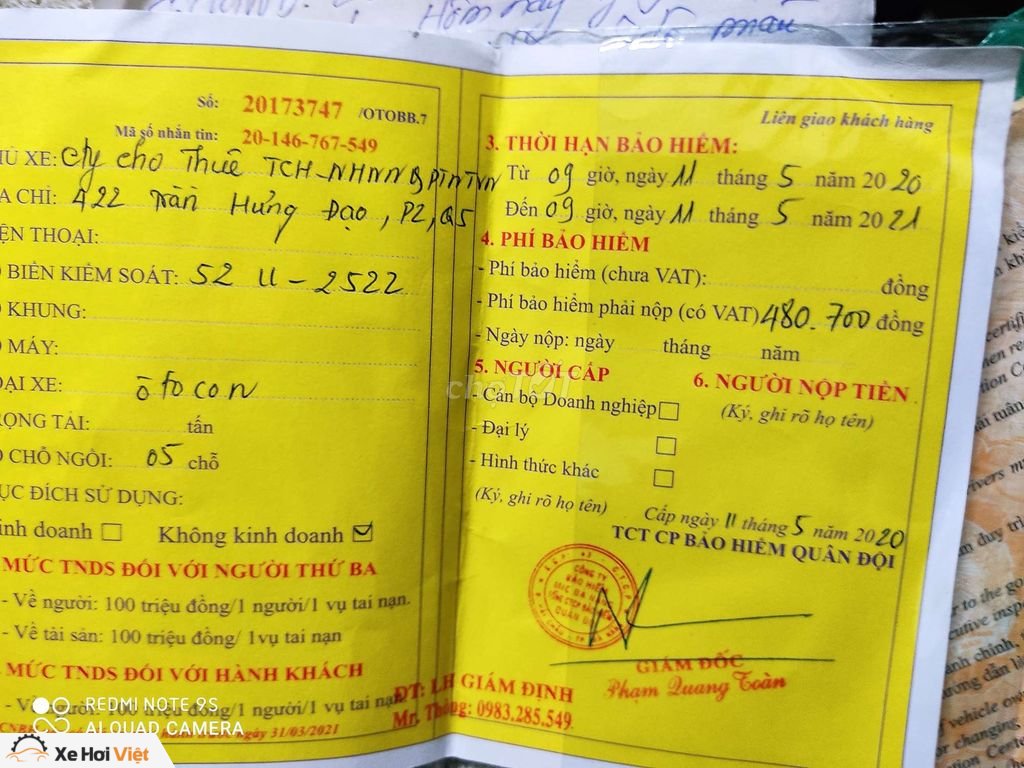 Hôm nay
Số: 20173747 /OTOBB.7
Mã số nhắn tin: 20-146-767-549
HỦ XE: Cty cho Thuê TCH-NHNN & PTNTVN
A CHỈ: 422 Trần Hưng Đạo, P2, Q5
IỆN THOẠI:
BIỂN KIỂM SOÁT: 52 U-2522
KHUNG:
MÁY:
OẠI XE: ôtô con
RỌNG TẢI: tấn
CHỖ NGỒI: 05 chỗ
ỤC ĐÍCH SỬ DỤNG:
inh doanh ☐ Không kinh doanh ☑
MỨC TNDS ĐỐI VỚI NGƯỜI THỨ BA
- Về người: 100 triệu đồng/1 người/1 vụ tai nạn.
- Về tài sản: 100 triệu đồng/ 1vụ tai nạn
MỨC TNDS ĐỐI VỚI HÀNH KHÁCH
- Về người: 100 triệu đồng/1 người/1 vụ tai nạn
ngày 31/03/2021
Liên giao khách hàng
3. THỜI HẠN BẢO HIỂM:
Từ 09 giờ, ngày 11 tháng 5 năm 2020
Đến 09 giờ, ngày 11 tháng 5 năm 2021
4. PHÍ BẢO HIỂM
- Phí bảo hiểm (chưa VAT): đồng
- Phí bảo hiểm phải nộp (có VAT) 480.700 đồng
- Ngày nộp: ngày tháng năm
5. NGƯỜI CẤP
- Cán bộ Doanh nghiệp ☐
- Đại lý ☐
- Hình thức khác ☐
(Ký, ghi rõ họ tên)
6. NGƯỜI NỘP TIỀN
(Ký, ghi rõ họ tên)
Cấp ngày 11 tháng 5 năm 2020
TCT CP BẢO HIỂM QUÂN ĐỘI
CÔNG TY
BẢO HIỂM
GIÁM ĐỐC
Phạm Quang Toàn
ĐT: LH GIÁM ĐỊNH
Mr. Thông: 0983.285.549.
chợTỐT
REDMI NOTE 9S
AI QUAD CAMERA
Xe Hơi Việt